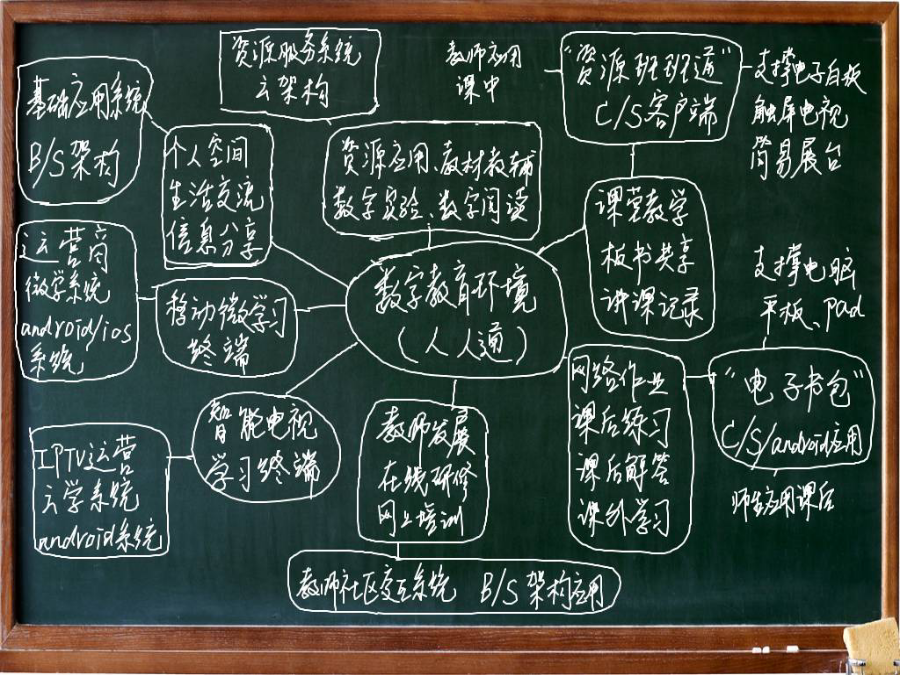 资源服务系统
云架构
教师应用
课中
"资源班班通"
C/S客户端
支撑电子白板
触屏电视
简易展台
基础应用系统
B/S架构
个人空间
生活交流
信息分享
资源应用、教材教辅
数字实验、数字阅读
课堂教学
板书共享
讲课记录
运营商
微学系统
android/ios
系统
移动微学习
终端
数字教育环境
(人人通)
支撑电脑
平板、pad
智能电视
学习终端
教师发展
在线研修
网上培训
网络作业
课后练习
课后解答
课外学习
"电子书包"
C/S/android应用
师生应用课后
IPTV运营
云学系统
android系统
教师社区交互系统 B/S架构应用